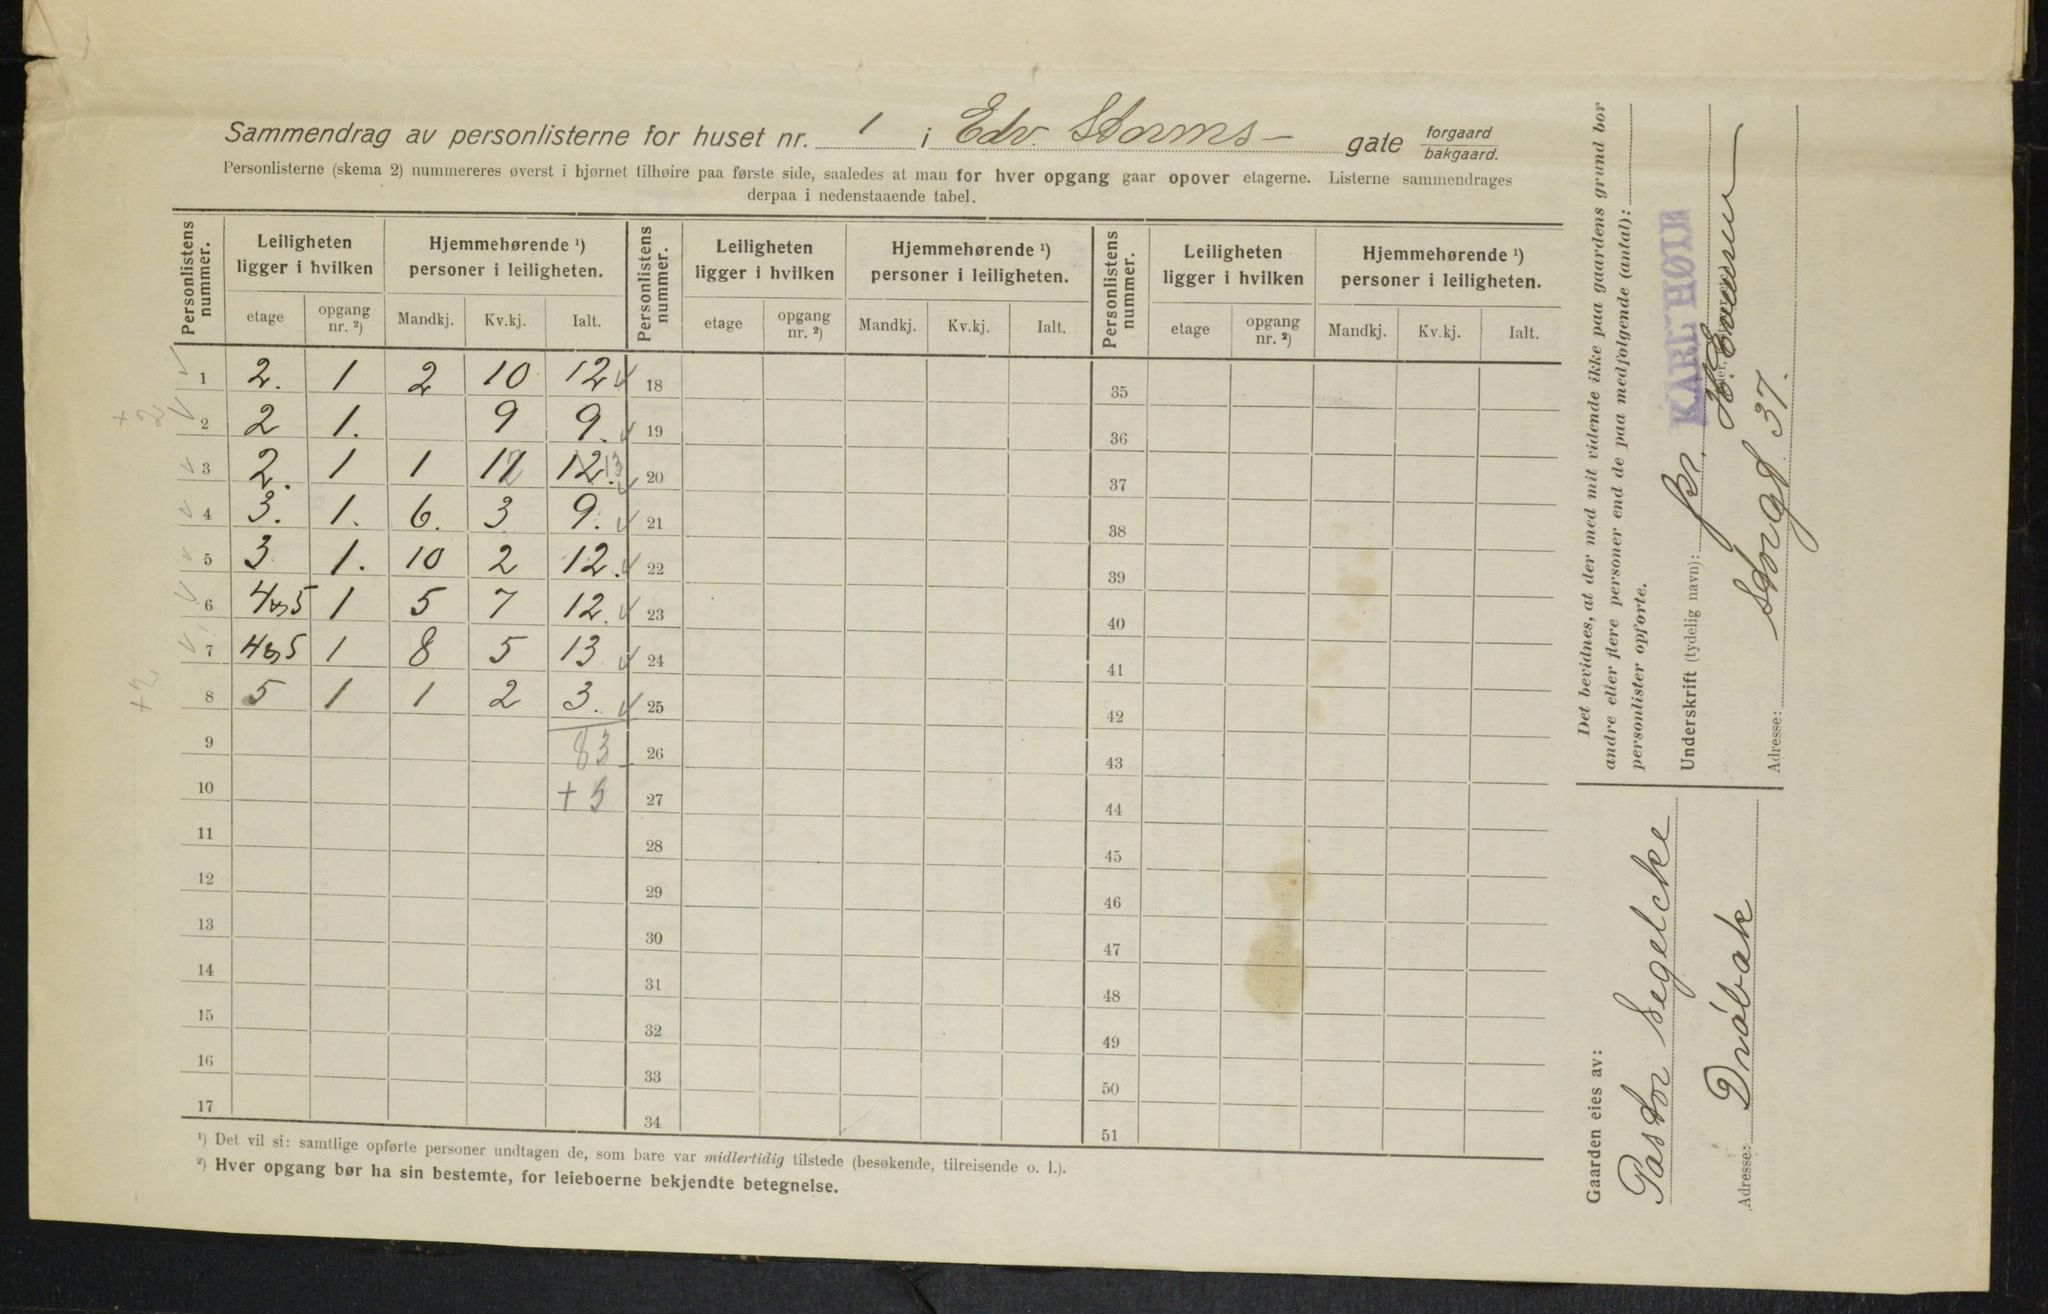 Sammendrag av personlisterne for huset nr. 1 i Edv. Storms gate forgaard bakgaard.
Personlisterne (skema 2) nummereres øverst i hjørnet tilhøire paa første side, saaledes at man for hver opgang gaar opover etagerne. Listerne sammendrages
derpaa i nedenstaaende tabel.
Personlistens nummer. Leiligheten ligger i hvilken Hjemmehørende ¹) personer i leiligheten. Personlistens nummer. Leiligheten ligger i hvilken Hjemmehørende ¹) personer i leiligheten. Personlistens nummer. Leiligheten ligger i hvilken Hjemmehørende ¹) personer i leiligheten.
etage opgang nr. ²) Mandkj. Kv.kj. Ialt. etage opgang nr. ²) Mandkj. Kv.kj. Ialt. etage opgang nr. ²) Mandkj. Kv.kj. Ialt.
1 2. 1 2 10 12 18 35
+ 2 2 2 1. 9 9. 19 36
3 2. 1 1 12 12. 13 20 37
4 3. 1. 6. 3 9. 21 38
5 3 1. 10 2 12. 22 39
6 4 5 1 5 7 12. 23 40
7 4 5 1 8 5 13 24 41
+2 8 5 1 1 2 3. 25 42
9 83 26 43
10 + 27 44
11 28 45
12 29 46
13 30 47
14 31 48
15 32 49
16 33 50
17 34 51
¹) Det vil si: samtlige opførte personer undtagen de, som bare var midlertidig tilstede (besøkende, tilreisende o. l.).
²) Hver opgang bør ha sin bestemte, for leieboerne bekjendte betegnelse.
Det bevidnes, at der med mit vidende ikke paa gaardens grund bor
andre eller flere personer end de paa medfølgende (antal):
personlister opførte.
KARL HØIE
Underskrift (tydelig navn): pr.
Adresse: Storgt 37.
Gaarden eies av:
Pastor Segelcke
Adresse: Drøbak